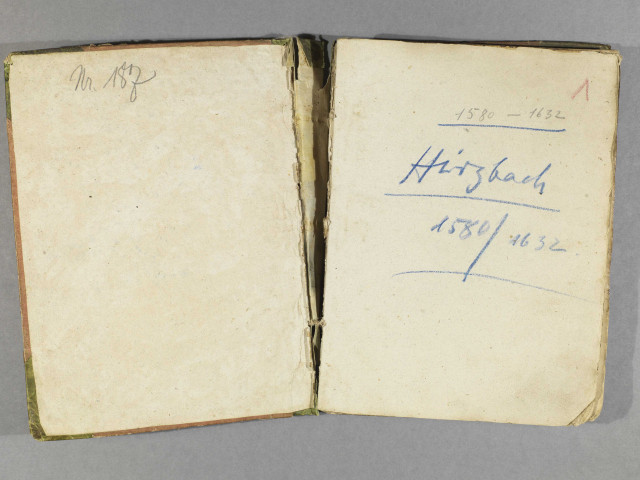 Nr. 187
1
1580 – 1632
Hirzbach
1580/1632